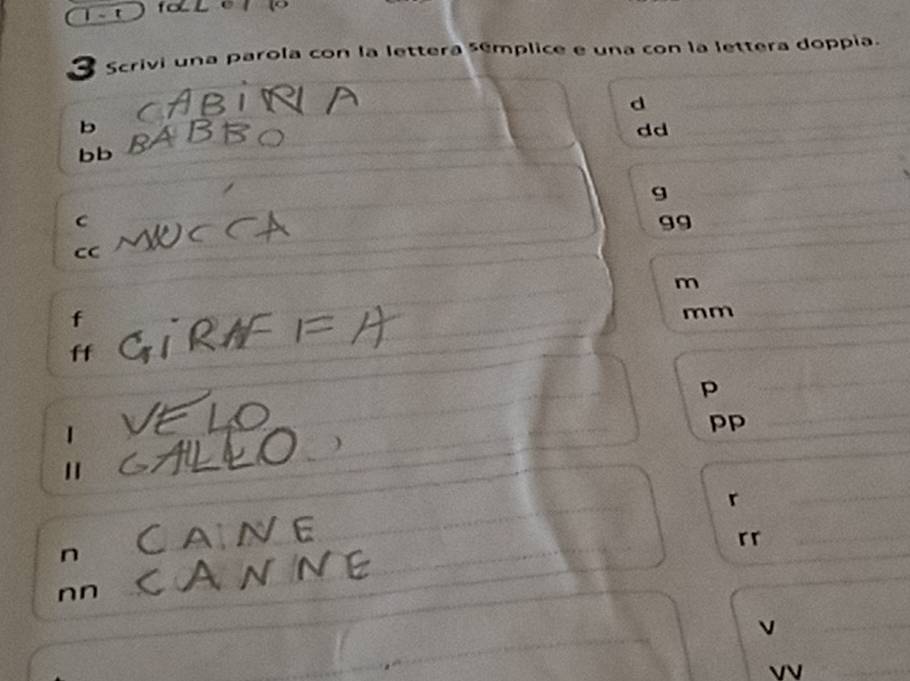 1 - t
3 Scrivi una parola con la lettera semplice e una con la lettera doppia.
b CABIRIA
bb BABBO
c
cc MUCCA
f
ff GIRAFFA
l VELO
ll GALLO
n CANE
nn CANNE
d
dd
g
gg
m
mm
p
pp
r
rr
v
vv